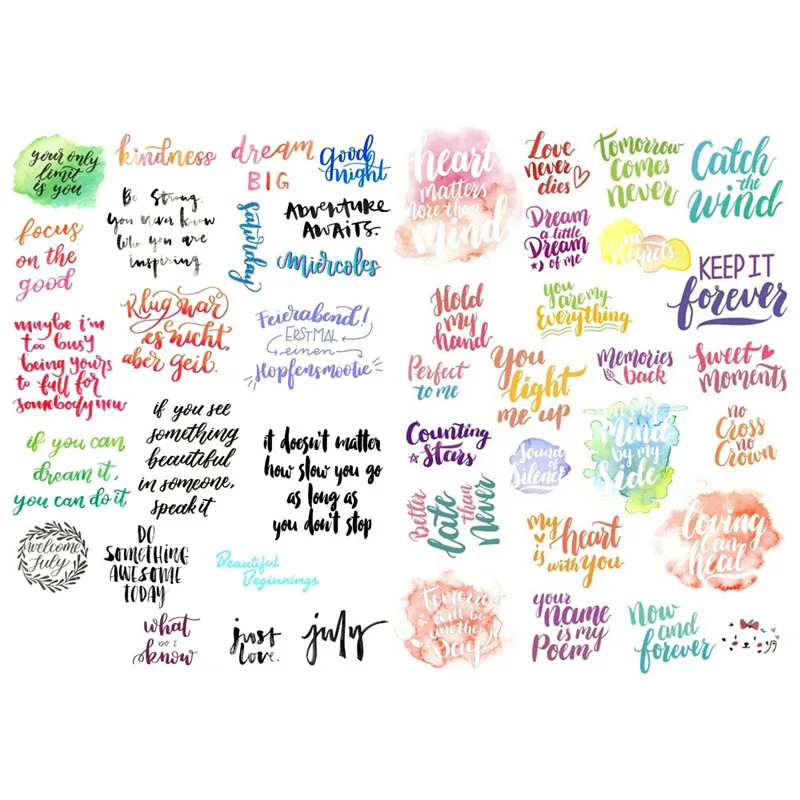 your only
limit
is you
kindness
dream
BIG
good
night
focus
on the
good
Be Strong.
You never know
who you are
inspiring
Saturday
ADVENTURE
AWAITS.
Miércoles
maybe i'm
too busy
being yours
to fall for
somebody new
Klug war
es nicht,
aber geil.
Feierabend!
ERSTMAL
einen
Hopfensmootie
if you can
dream it,
you can do it
if you see
something
beautiful
in someone,
speak it
it doesn't matter
how slow you go
as long as
you don't stop
welcome
July
DO
SOMETHING
AWESOME
TODAY
Beautiful
Beginnings
what
DO I
know
just
love.
july
heart
matters
more than
mind
Love
never
dies
Tomorrow
comes
never
Catch
the
wind
Dream
a little
Dream
of me
no
Regrets
KEEP IT
forever
Hold
my
hand
you are my
Everything
Perfect
to me
You
light
me up
Memories
back
Sweet
moments
Counting
Stars
Sound
of
Silence
in my
Mind
by my
Side
no
Cross
no
Crown
Better
late
than
Never
My
heart
is
with you
Loving
can
heal
Tomorrow
will be
another
Day
your
name
is my
Poem
Now
and
forever